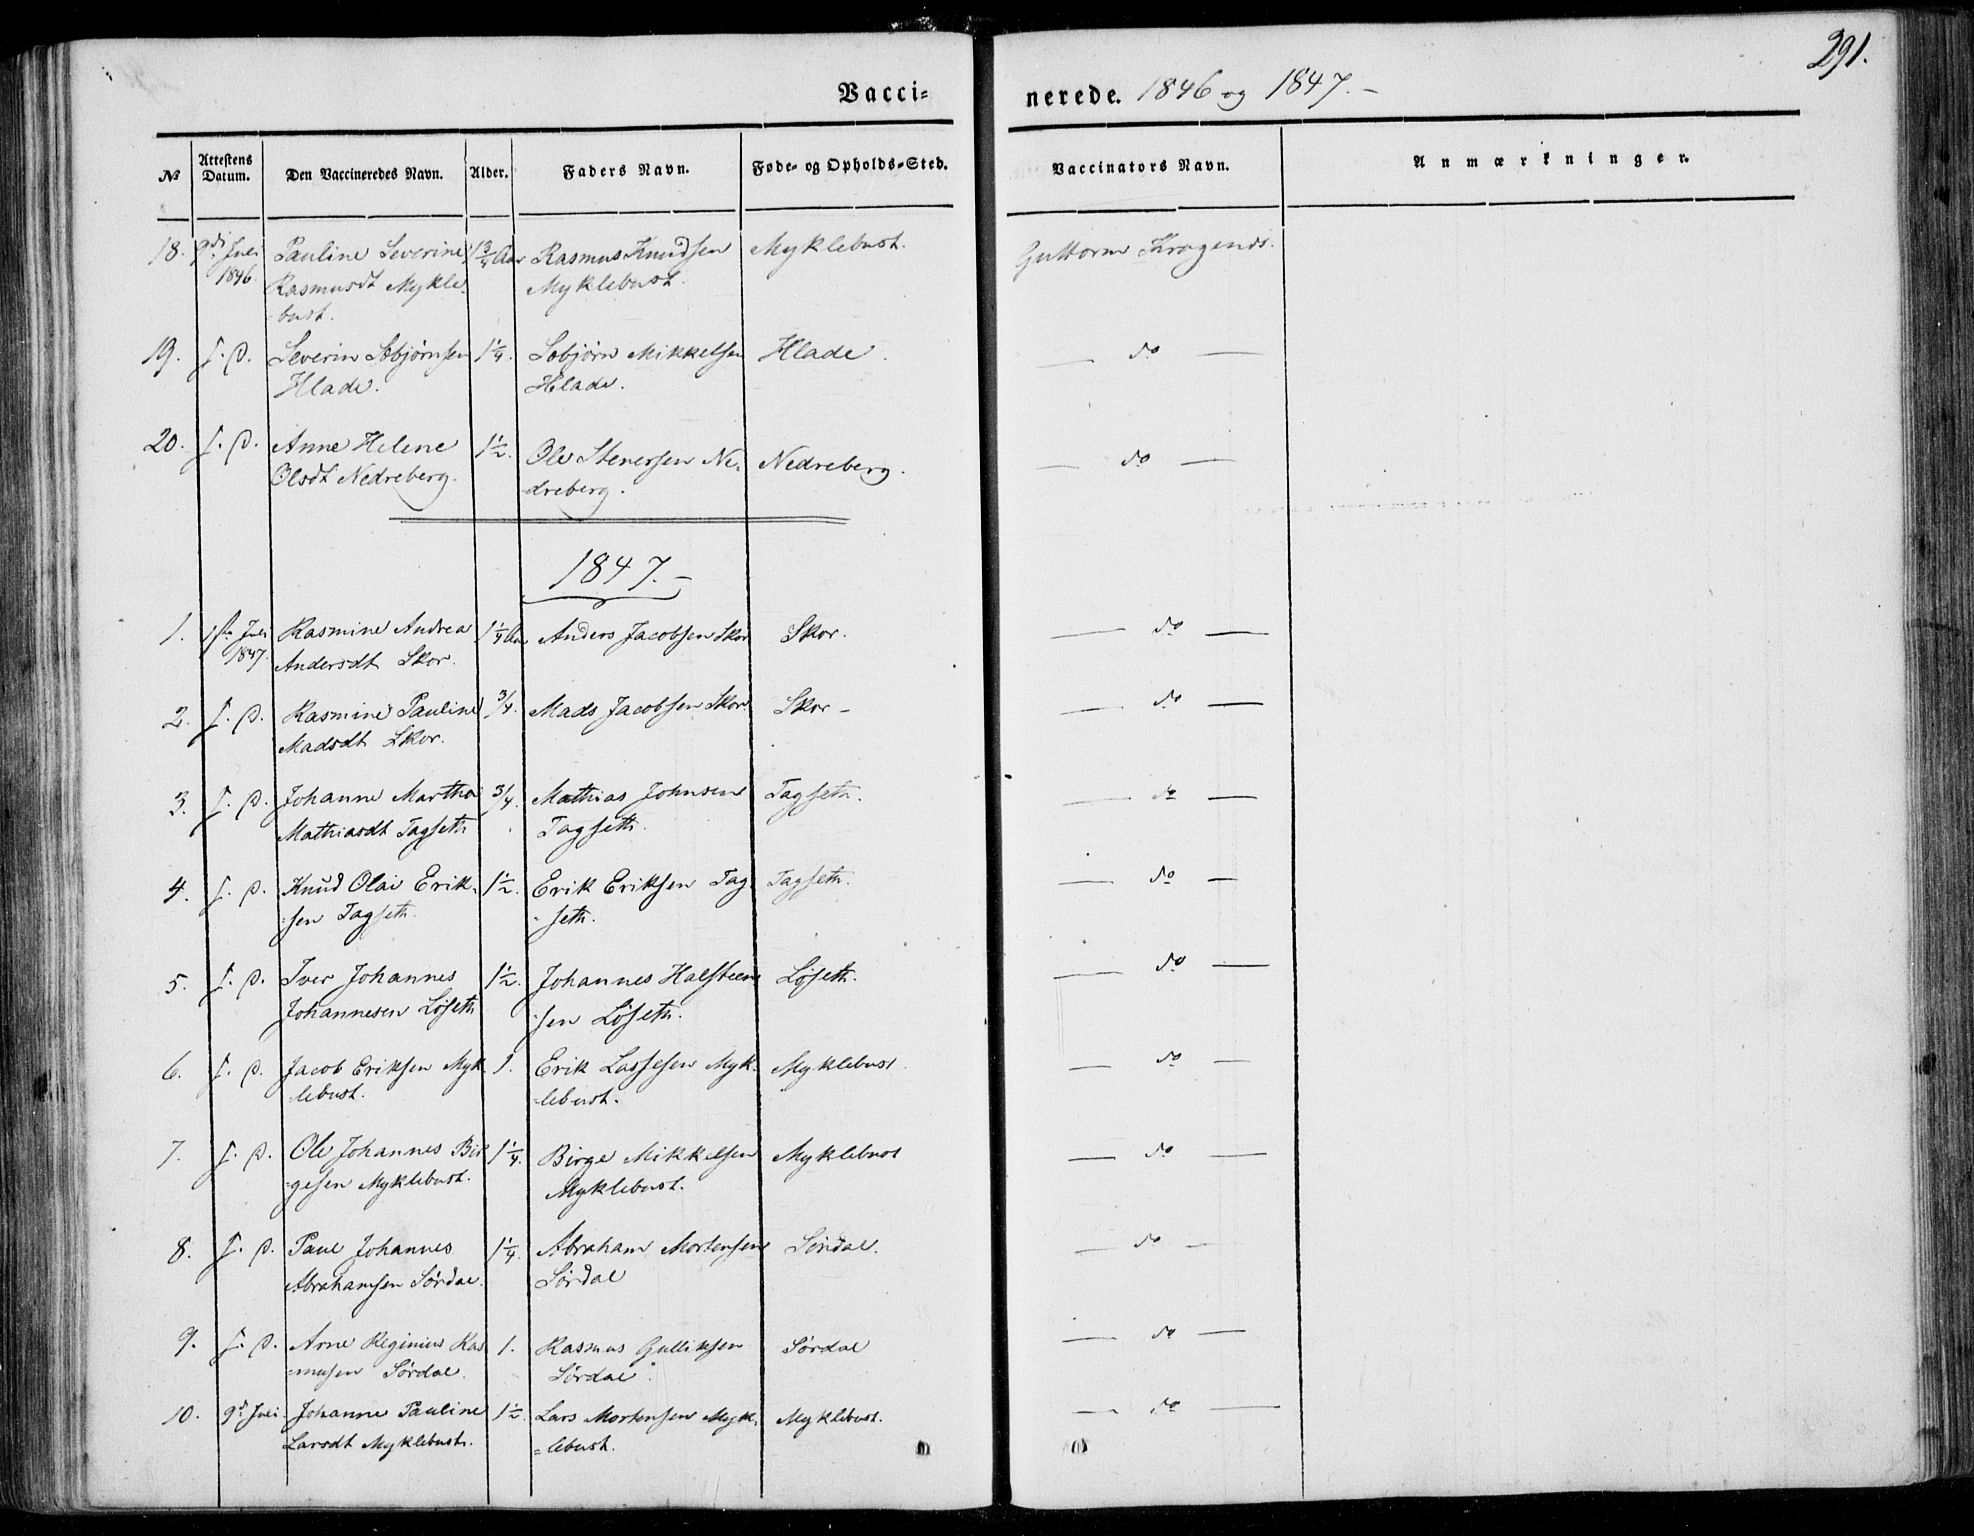 291.
Vacci= nerede. 1846 og 1847. –
No Attestens Datum. Den Vaccineredes Navn. Alder. Faders Navn. Føde- og Opholds-Sted. Vaccinators Navn. Anmærkninger.
18. Juli Pauline Severine 1 3/4 Aar Rasmus Knudsen Myklebust. Guttorm
1846. Rasmusdt Mykle- Myklebust.
bust.
19. J. D. Severin Sobjørnsen 1 1/4. Sobjørn Mikkelsen Hlade. — do —
Hlade. Hlade.
20. J. D. Anne Helene 1 1/2. Ole Stenersen Ne- Nedreberg. — do —
Olsdt Nedreberg. dreberg.
1847. –
1. 1ste Juli Rasmine Andrea 1 1/4 Aar Anders Jacobsen Skor Skor. — do —
1847. Andersdt Skor.
2. J. D. Rasmine Pauline 3/4. Mads Jacobsen Skor. Skor – — do —
Madsdt Skor.
3. J. D. Johanne Martha 3/4. Mathias Johnsen Tagseth. — do —
Mathiasdt Tagseth Tagseth.
4. J. D. Knud Olai Erik- 1 1/2. Erik Eriksen Tag- Tagseth. — do —
sen Tagseth. -seth.
5. J. D. Iver Johannes 1 1/2. Johannes Halsteen- Løseth. — do —
Johannesen Løseth -sen Løseth.
6. J. D. Jacob Eriksen Myk- 1. Erik Lassesen Myk- Myklebust. — do —
lebust. -lebust.
7. J. D. Ole Johannes Bir- 1 1/4. Birge Mikkelsen Myklebust — do —
-gesen Myklebust. Myklebust.
8. J. D. Paul Johannes 1 1/4. Abraham Mortensen Sørdal. — do —
Abrahamsen Sørdal. Sørdal
9. J. D. Arne Reginius Ras- 1. Rasmus Gulliksen Sørdal — do —
-musen Sørdal. Sørdal.
10. 9d Juli. Johanne Pauline 1 1/2. Lars Mortensen Myk- Myklebust. — do —
Larsdt Myklebust. =lebust.